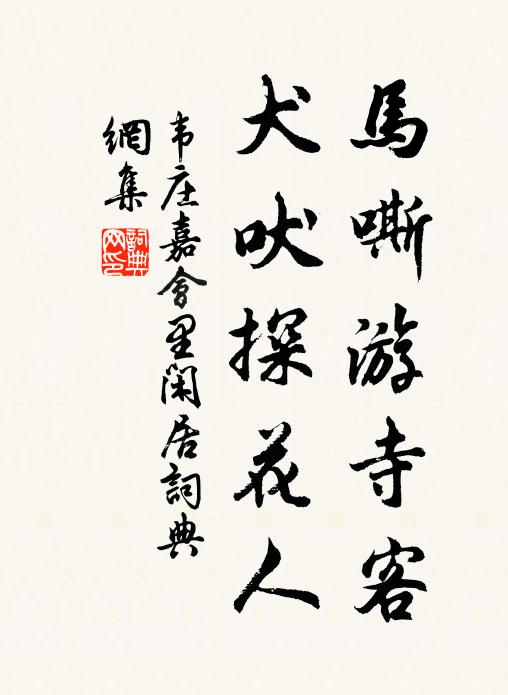 馬嘶游寺客
犬吠探花人
韦庄嘉會里闲居詞典
網集
詞典
网印